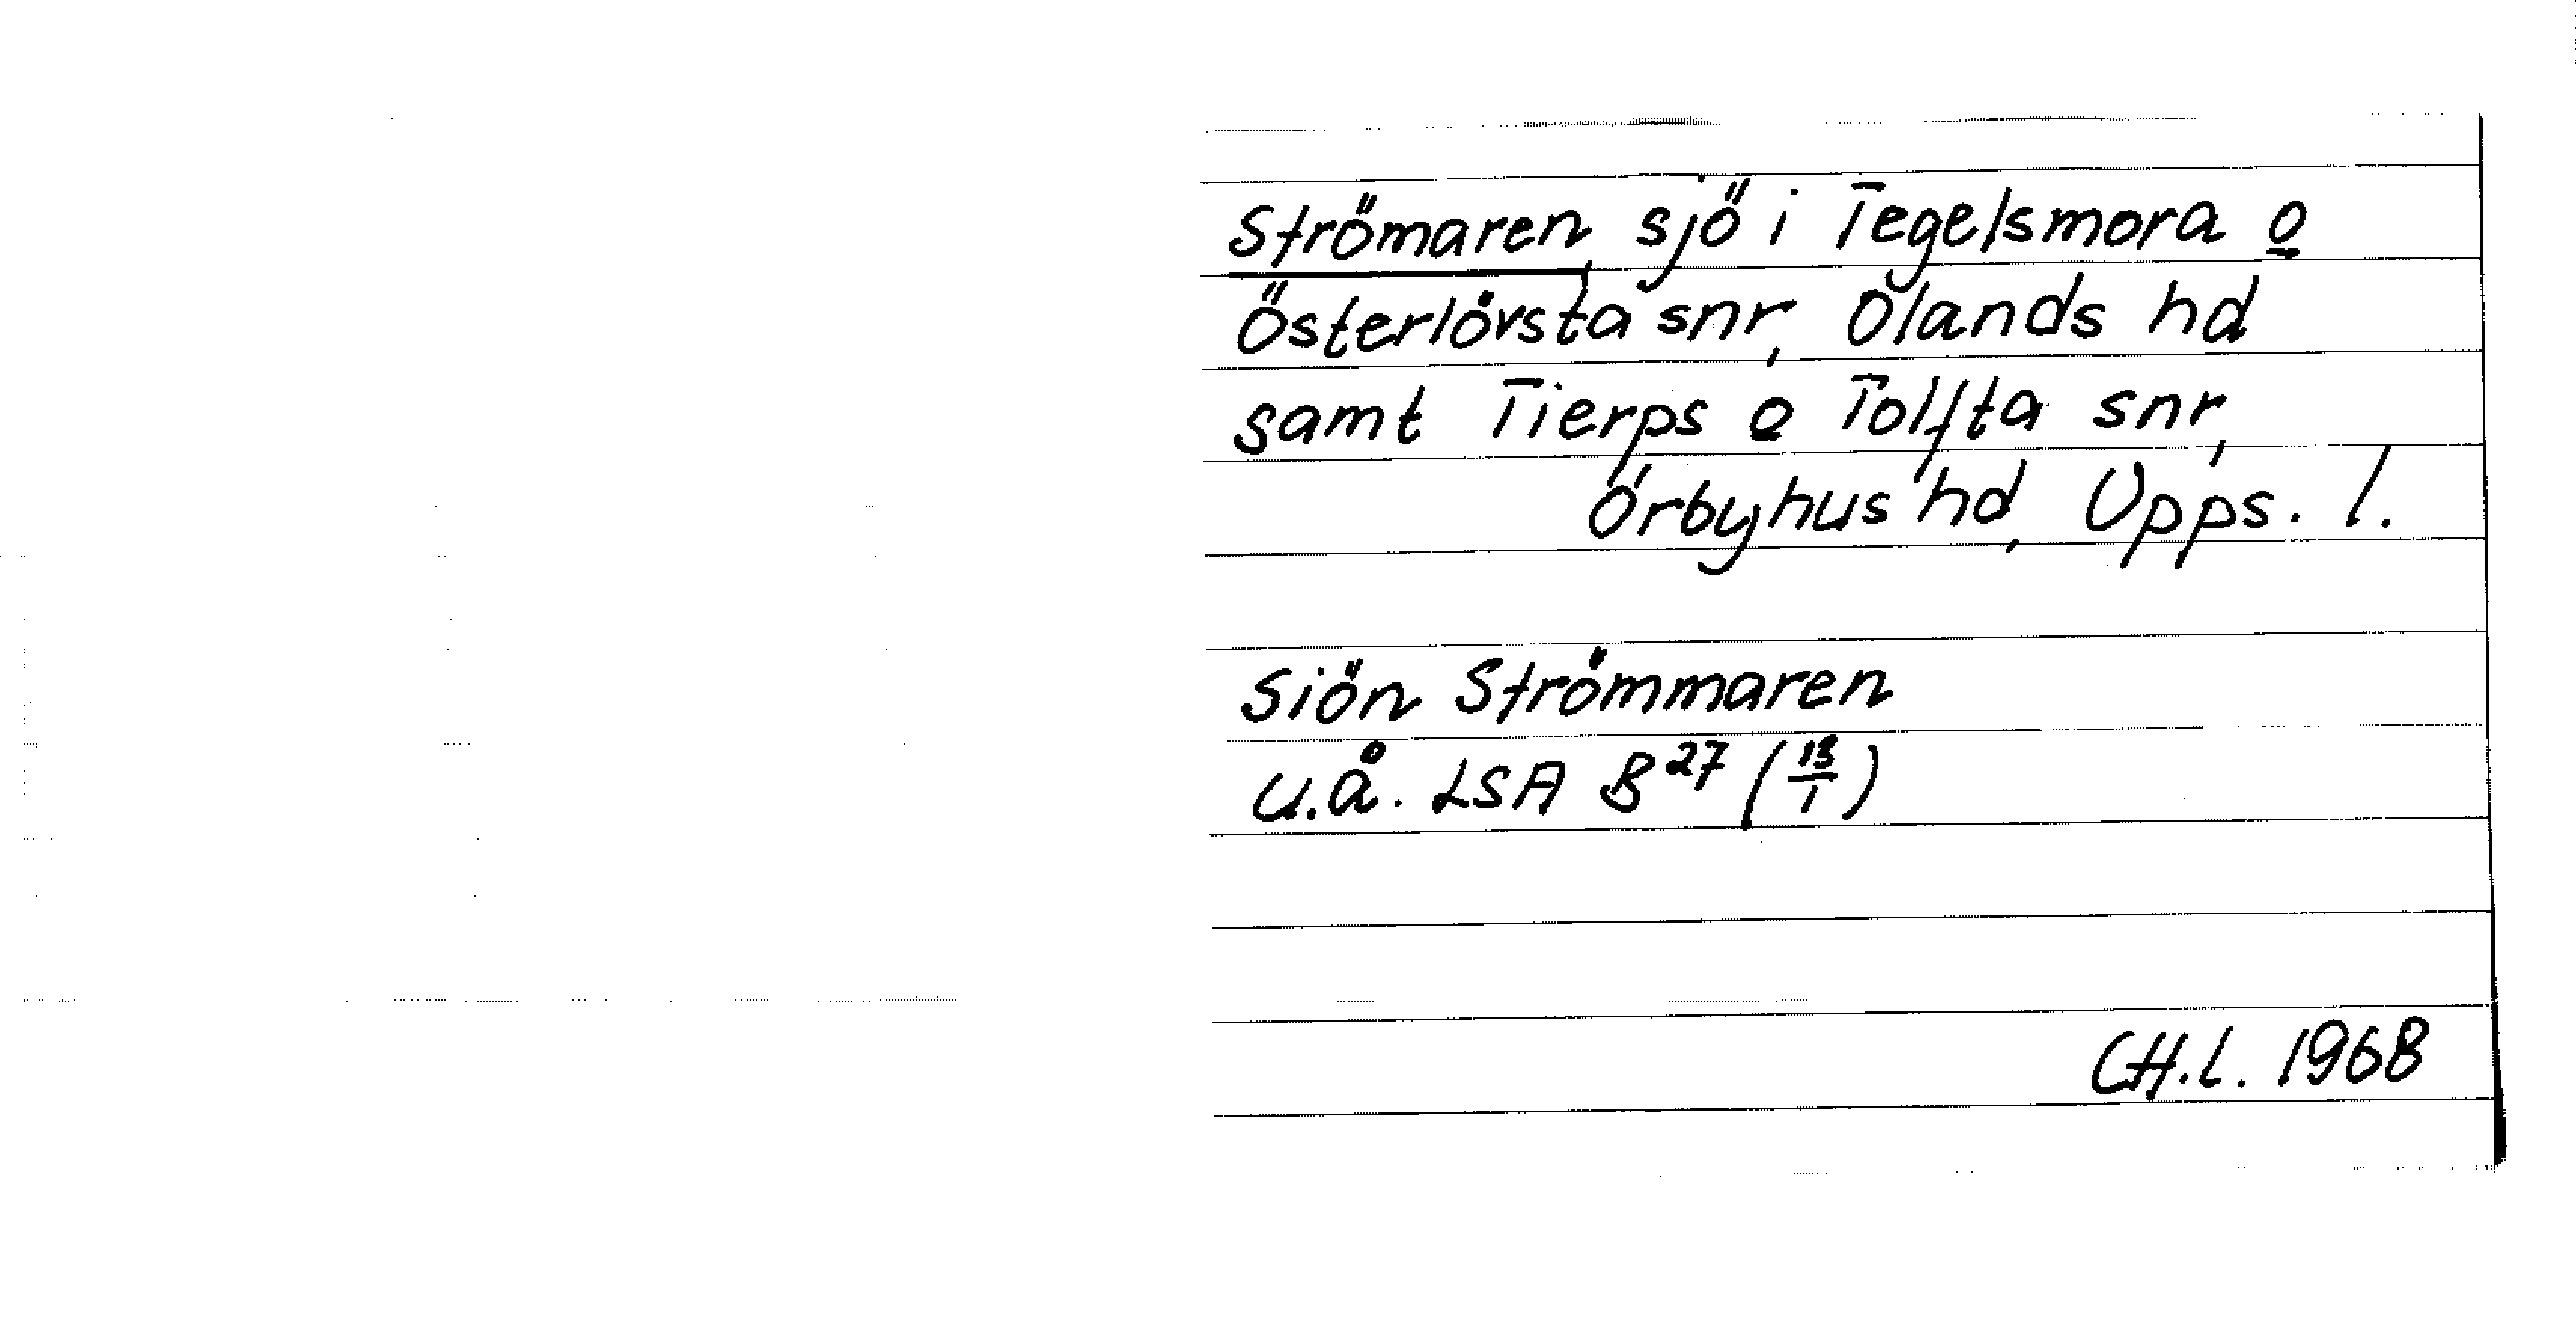 Strömaren, sjö i Tegelsmora o
Österlövsta snr, Olands hd
samt Tierps o Tolfta snr,
Örbyhus hd, Upps. l.
Siön Strömmaren
u.å. LSA B 27 (13/1)
CH.L. 1968